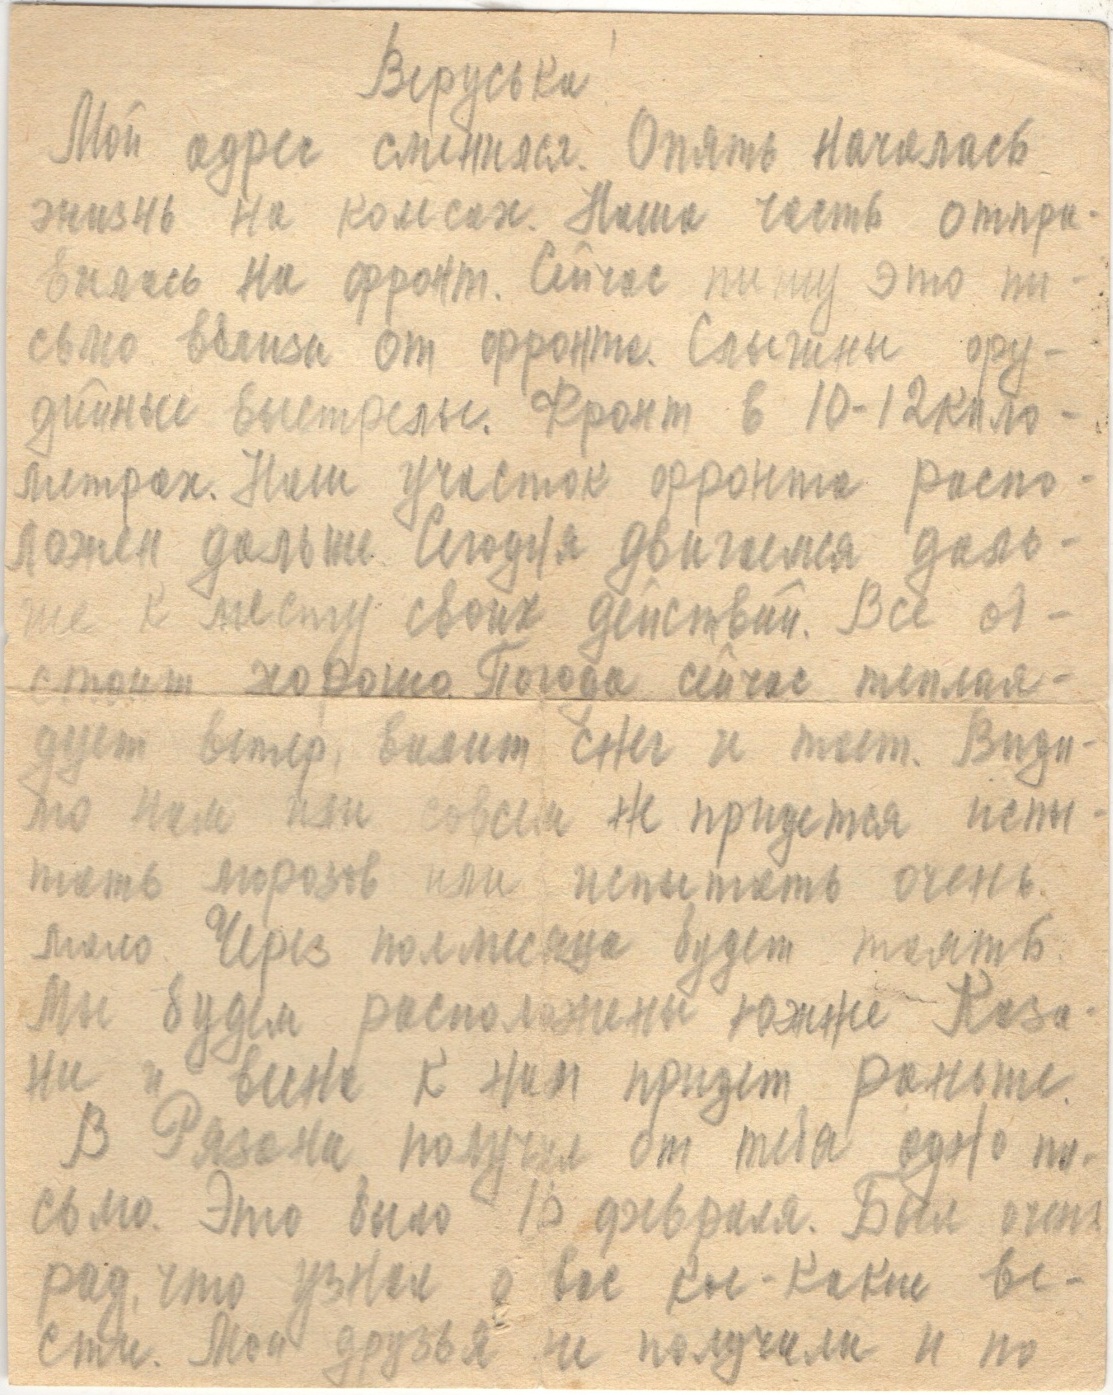 Веруська!
Мой адрес сменился. Опять началась
жизнь на колесах. Наша часть отпра-
вилась на фронт. Сейчас пишу это пи-
сьмо вблизи от фронта. Слышны ору-
дийные выстрелы. Фронт в 10-12 кило-
метрах. Наш участок фронта распо-
ложен дальше. Сегодня двигаемся даль-
ше к месту своих действий. Все об-
стоит хорошо. Погода сейчас теплая-
дует ветер, валит снег и тает. Види-
мо нам или совсем не придется испы-
тать морозов или испытать очень
мало. Через полмесяца будет таять.
Мы будем расположены южнее Каза-
ни и весна к нам придет раньше.
В Рязани получил от тебя одно пи-
сьмо. Это было февраля. Был очень
рад, что узнал о вас кое-какие ве-
сти. Мои друзья не получили и по